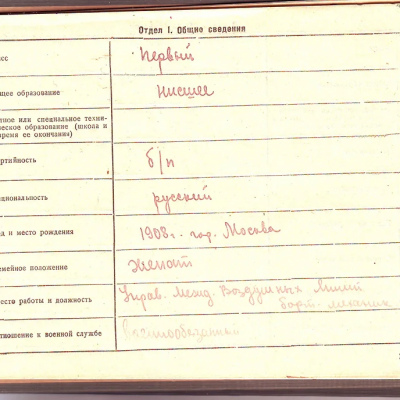 Отдел I. Общие сведения
сс
Первый
щее образование
низшее
ное или специальное техни-
ческое образование (школа и
время ее окончания)
ртийность
б/п
циональность
русский
д и место рождения
1908 г. гор. Москва
мейное положение
женат
есто работы и должность
Управ. Межд. Воздушных Линий
борт. механик
тношение к военной службе
Военнообязанный